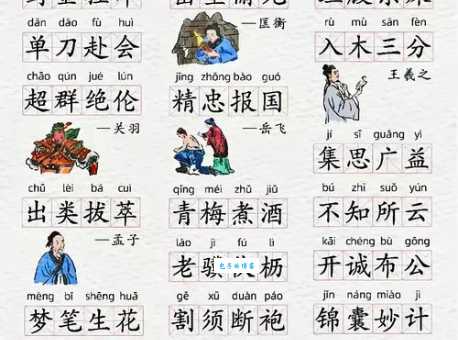 dān dāo fù huì
单刀赴会
chāo qún jué lún
超群绝伦
—关羽
chū lèi bá cuì
出类拔萃
—孟子
mèng bǐ shēng huā
梦笔生花
—匡衡
jīng zhōng bào guó
精忠报国
—岳飞
qīng méi zhǔ jiǔ
青梅煮酒
lǎo jì fú lì
老骥伏枥
gē xū duàn páo
割须断袍
rù mù sān fēn
入木三分
王羲之
jí sī guǎng yì
集思广益
bú zhī suǒ yún
不知所云
kāi chéng bù gōng
开诚布公
jǐn náng miào jì
锦囊妙计